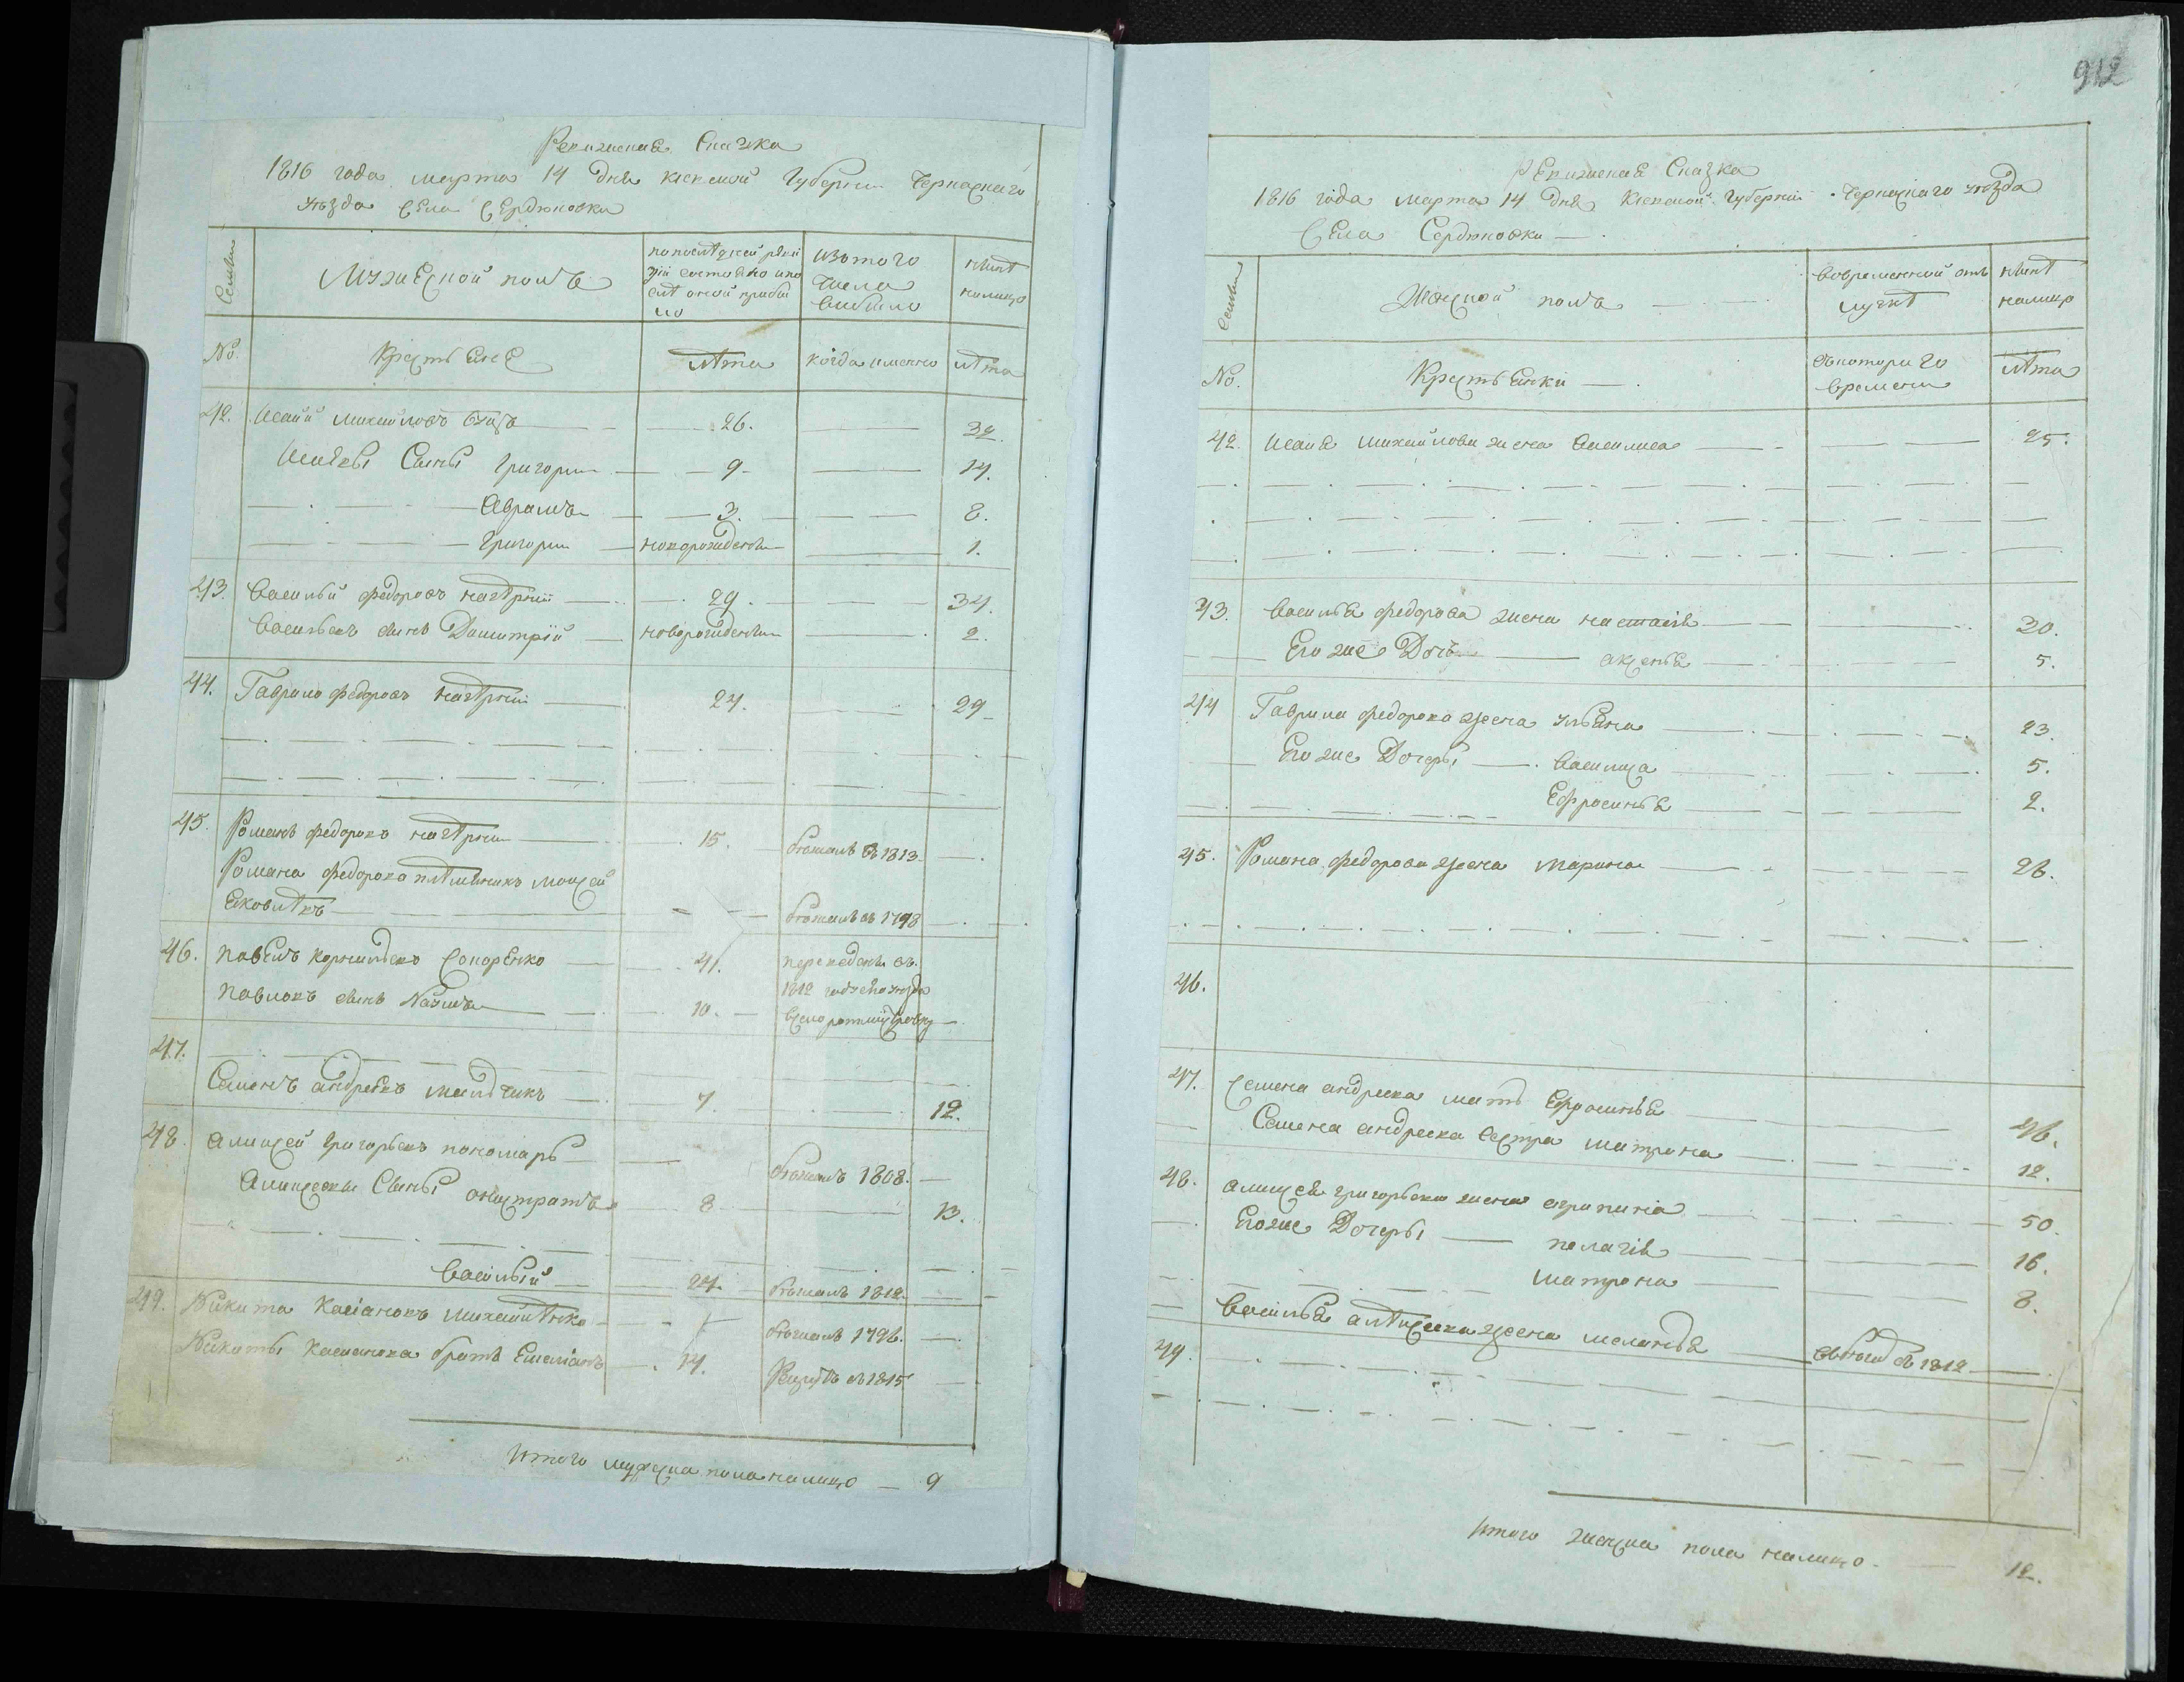 Ревизская Сказка
1816 года марта 14 дня киевской Губернии Черкаскаго
уезда Села Сердюковки
Семьи
Мужеской полъ
по последней реви
зiи состояло и по
сле оной прибы
ло
изтого
числа
выбыло
ныне
налицо
№.
Крестьяне
лета
когда имянно
лета
42. Исаiй михайловъ 26. 32.
Исаевы Сыны григорiи 9. 14.
Аврамъ 3. 8.
григорiи новорожденъ 1.
43. Василiй федоровъ 29. 34.
Васильевъ сынъ Дмитрiй новорожденъ 2.
44. Гаврило федоровъ 24. 29
45. Романъ федоровъ 15. бежалъ въ 1813
Романа федорова племенникъ моисей
Яковлевъ бежалъ въ 1798
46. павелъ 41. переведенъ въ
1812 году
павловъ сынъ 10.
47.
Семенъ андреевъ 7. 12.
48. Алексей григорьевъ пономарь бежалъ 1808.
Алексеевы Сыны онистратъ 8 13.
василiй 24. бежалъ 1812.
49. Никита Касiановъ бежалъ 1796.
Никиты Касианова братъ Емелiанъ 14. въ 1815
Итого мужеска пола налицо 9
912
Ревизская Сказка
1816 года марта 14 дня Киевской губернiи Черкаскаго уезда
Села Сердюковки
Семьи
Женской полъ
вовременной отъ
лучке
ныне
налицо
№.
Крестьянки
съкотораго
времени
лета
42. Исаия михайлова жена василиса 25.
43. Василья федорова жена настасiя 30.
Его же Дочь аксенья 5.
44 Гаврила федорова жена ульяна 23.
Его же Дочеры василиса 5.
Ефросинья 2.
45. Романа федорова жена марина 26.
46.
47. Семена андреева мать Ефросинья 46.
Семена андреева сестра матрона 12.
48. алексея григорьева жена агрипина 50.
Его же Дочеры пелагiя 16.
матрона 8.
василья алексеева жена меланья въ 1812
49.
Итого женска пола налицо. 12.